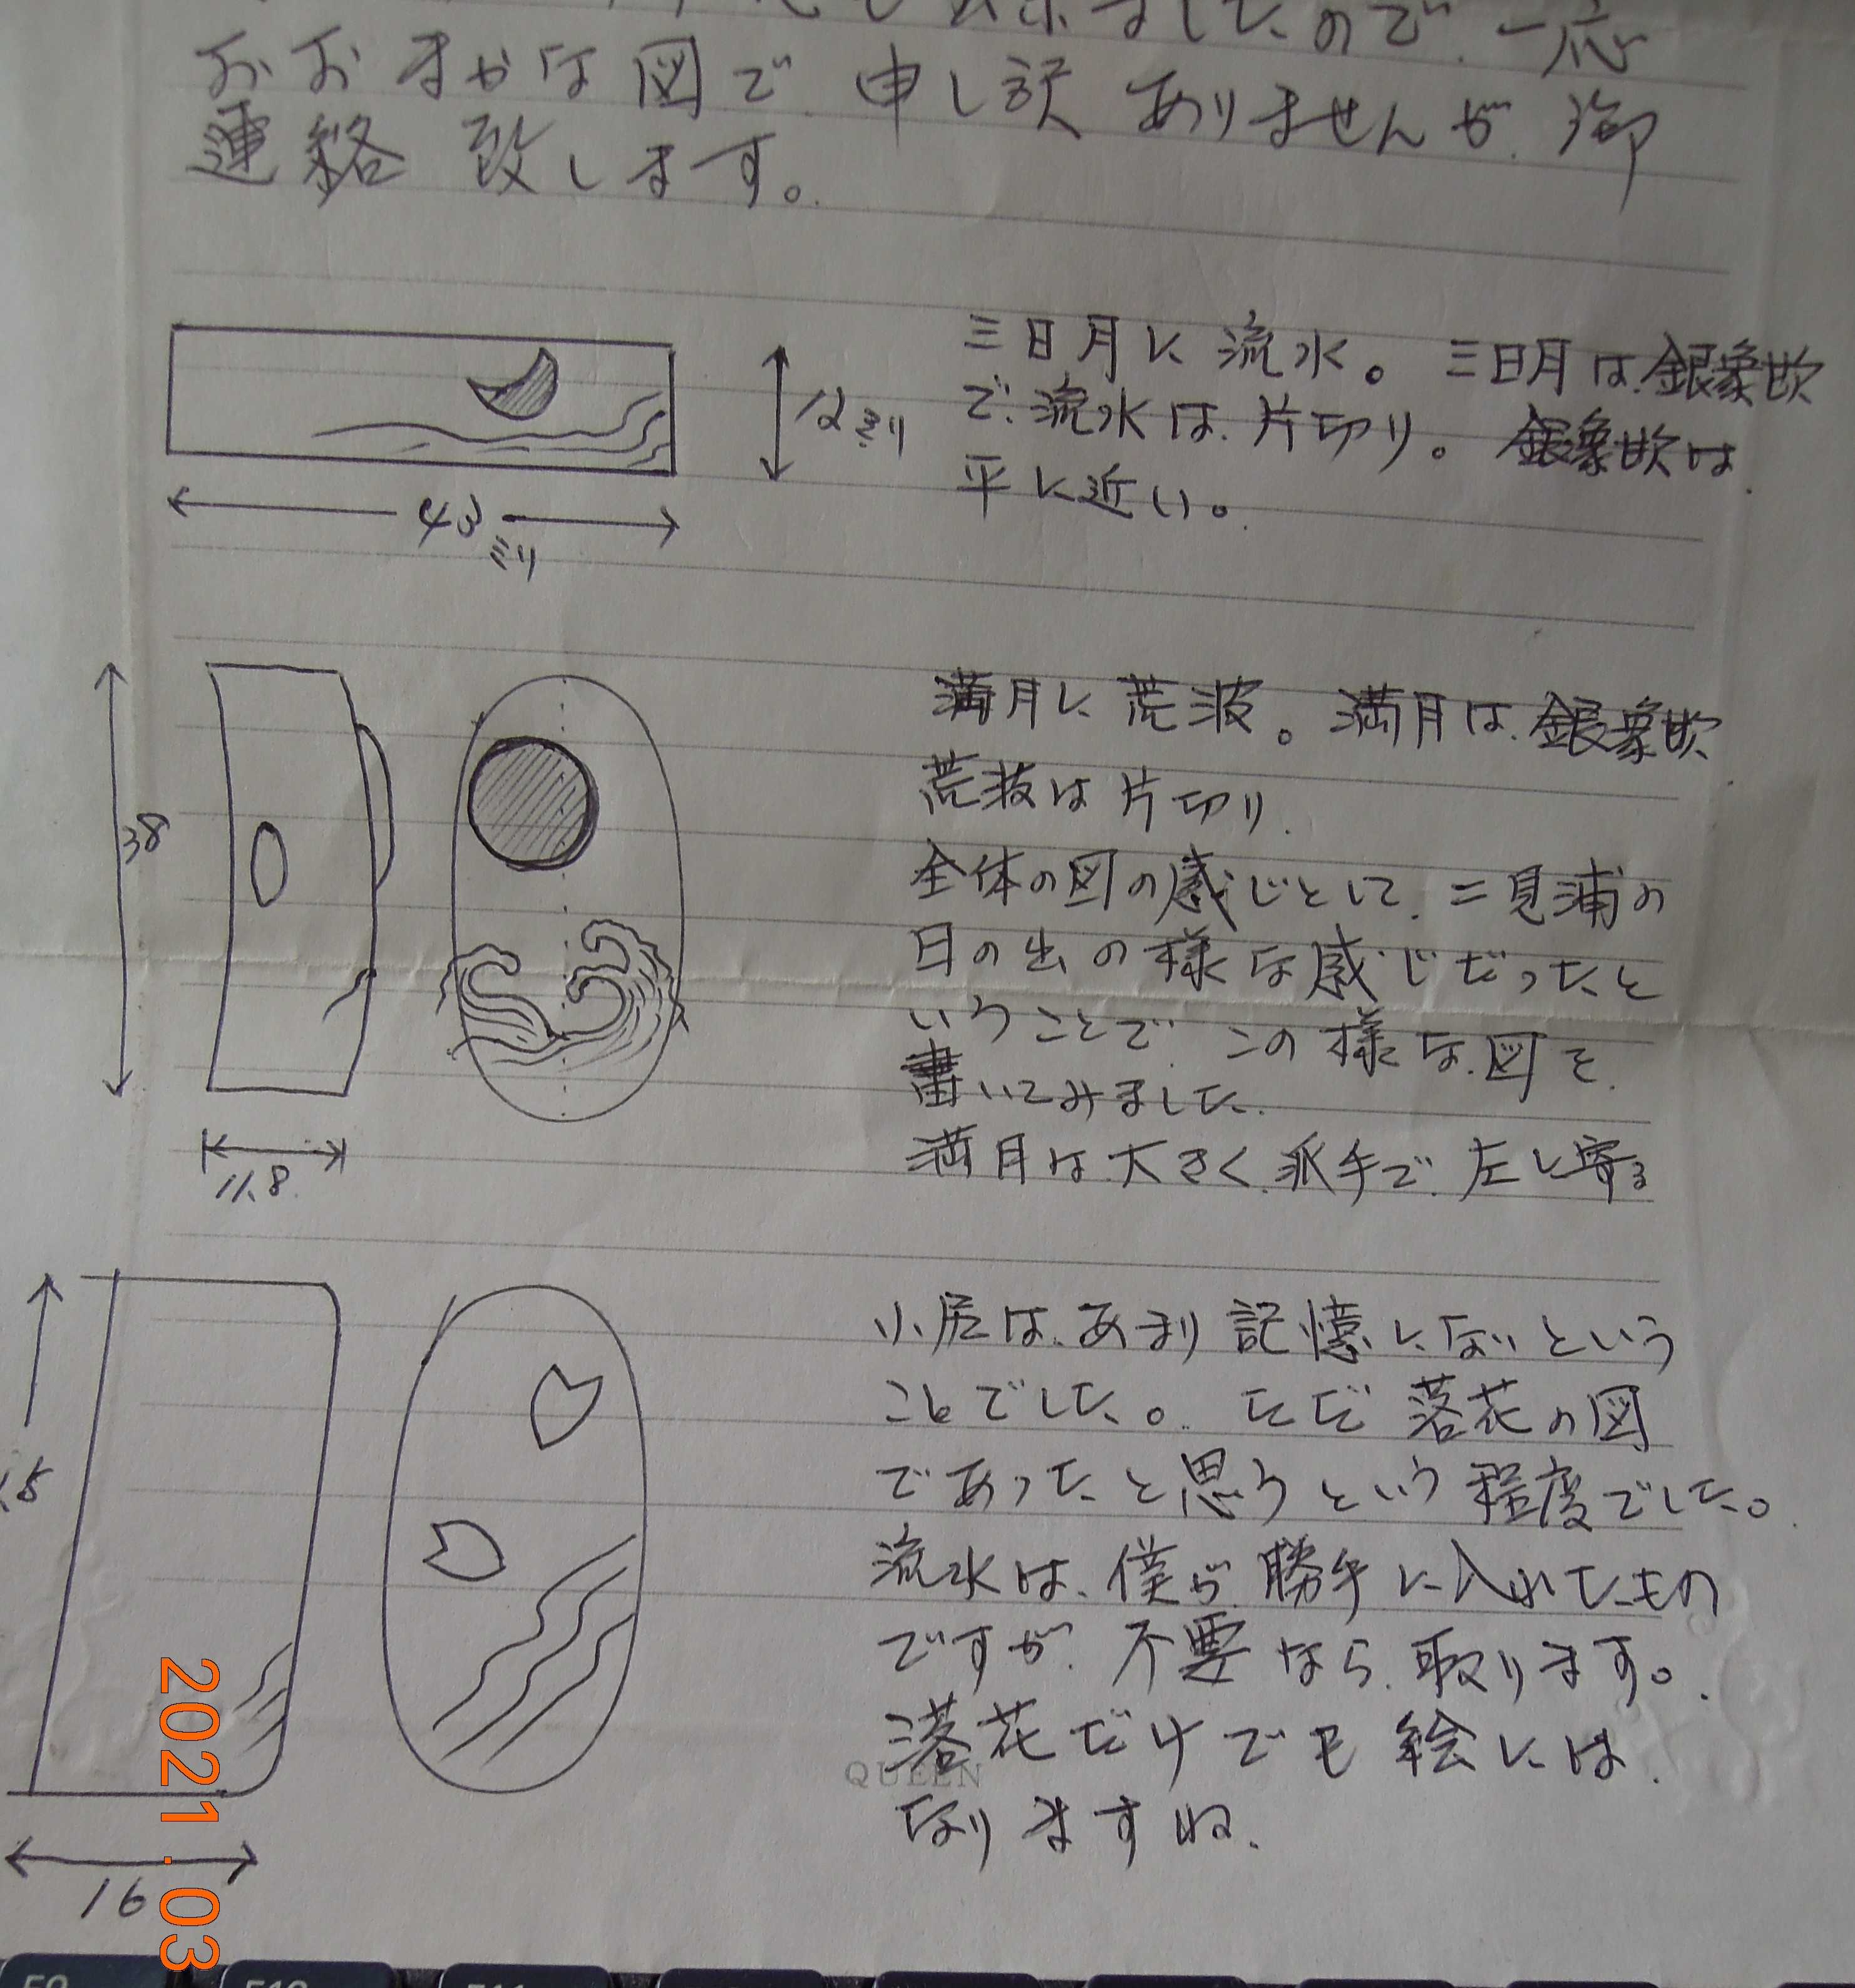 ましたので、一応
おおまかな図で、申し訳ありませんが、御
連絡致します。
三日月に流水。三日月は銀象嵌
で、流水は、片切り。銀象嵌は
平に近い。
12ミリ
43
ミリ
満月に荒波。満月は、銀象嵌
荒波は片切り。
全体の図の感じとして、二見浦の
日の出の様な感じだったと
いうことで、この様な図を
書いてみました。
満月は大きく、派手で、左に寄る
38
11.8
小尻は、あまり記憶にないという
ことでした。ただ落花の図
であったと思うという程度でした。
流水は、僕が勝手に入れたもの
ですが、不要なら、取ります。
落花だけでも絵には
なりますね。
16
QUEEN
2021.03
F10
F11